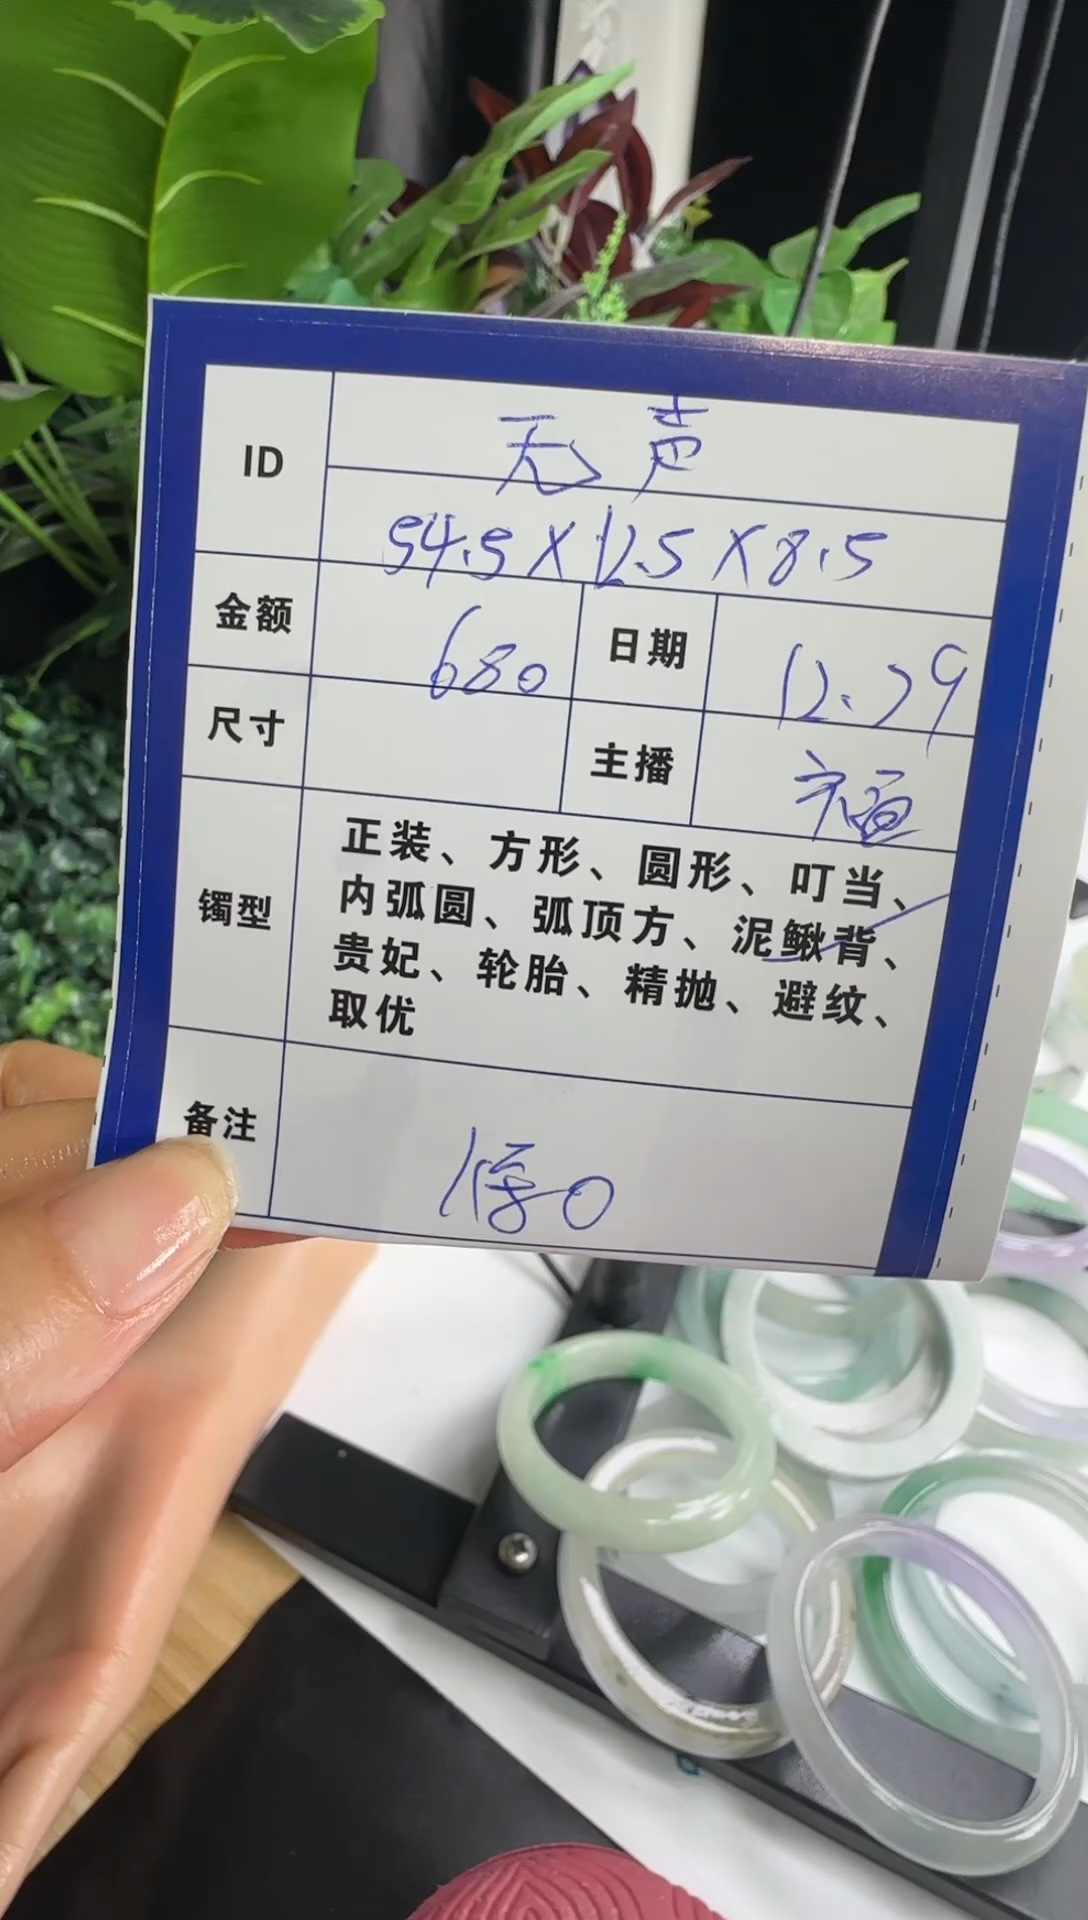 ID
无声
54.5X12.5X8.5
金额
680
日期
12.29
尺寸
主播
镯型
正装、方形、圆形、叮当、
内弧圆、弧顶方、泥鳅背、
贵妃、轮胎、精抛、避纹、
取优
备注